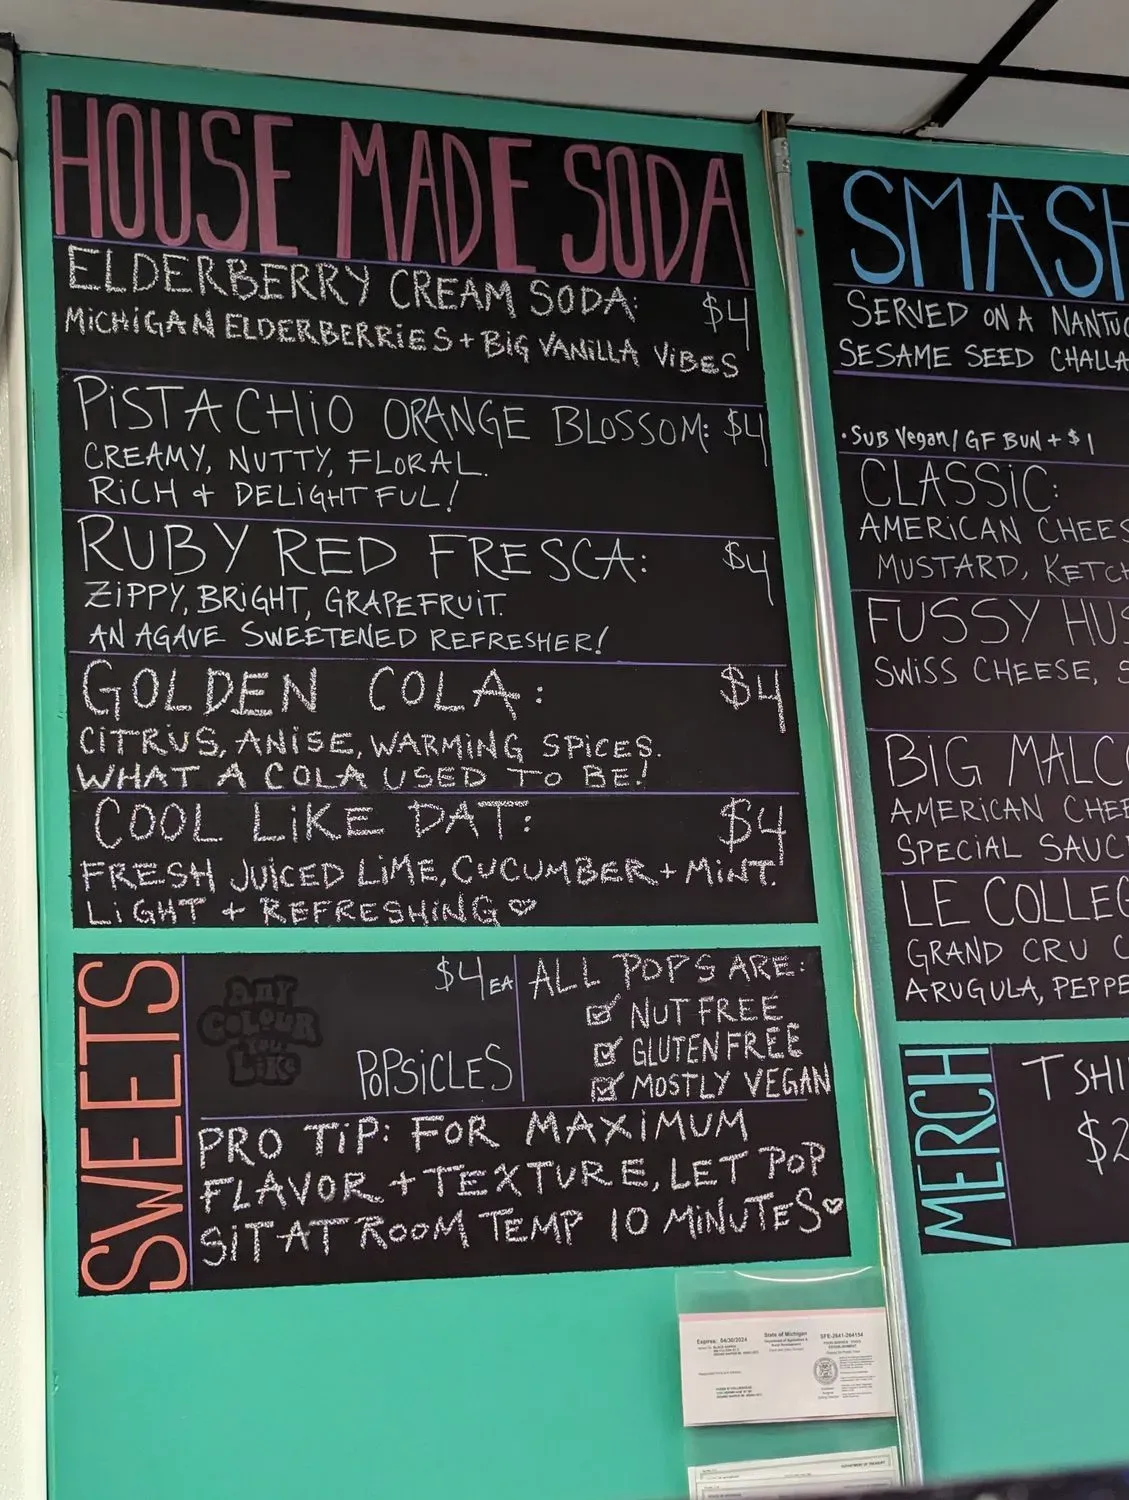 HOUSE MADE SODA
ELDERBERRY CREAM SODA: $4
MICHIGAN ELDERBERRIES + BIG VANILLA VIBES
PISTACHIO ORANGE BLOSSOM: $4
CREAMY, NUTTY, FLORAL.
RICH + DELIGHTFUL!
RUBY RED FRESCA: $4
ZIPPY, BRIGHT, GRAPEFRUIT.
AN AGAVE SWEETENED REFRESHER!
GOLDEN COLA: $4
CITRUS, ANISE, WARMING SPICES.
WHAT A COLA USED TO BE!
COOL LIKE DAT: $4
FRESH JUICED LIME, CUCUMBER + MINT.
LIGHT + REFRESHING ♡
SWEETS
ANY
COLOUR
YOU
LIKE
$4 EA
POPSICLES
ALL POPS ARE:
☑ NUT FREE
☑ GLUTEN FREE
☑ MOSTLY VEGAN
PRO TIP: FOR MAXIMUM
FLAVOR + TEXTURE, LET POP
SIT AT ROOM TEMP 10 MINUTES ♡
SMASH
SERVED ON A NANTUC
SESAME SEED CHALLA
• SUB Vegan/GF BUN + $1
CLASSIC:
AMERICAN CHEES
MUSTARD, KETCH
FUSSY HUS
SWISS CHEESE, S
BIG MALCO
AMERICAN CHEE
SPECIAL SAUC
LE COLLEG
GRAND CRU C
ARUGULA, PEPPE
MERCH
T SHI
$2
Expires: 04/30/2024
State of Michigan
SFE-2641-264154